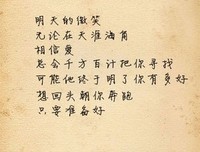 明天的微笑
无论在天涯海角
相信爱
总会千方百计把你寻找
可能他终于明了你有多好
想回头朝你奔跑
只要准备好